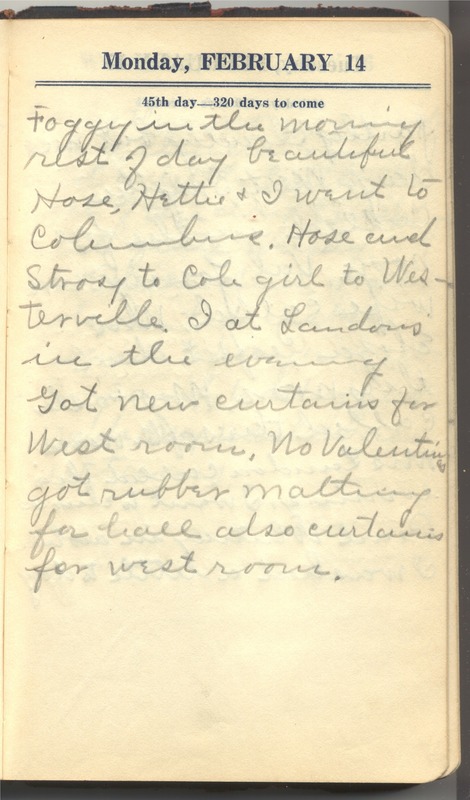 Monday, FEBRUARY 14
45th day—320 days to come
Foggy in the morning
rest of day beautiful
Hose, Hettie & I went to
Columbus. Hose and
to Cols girl to Wes-
terville. I at Landons
in the evening
Got new curtains for
West room, No Valentines
got rubber matting
for hall also curtains
for west room.